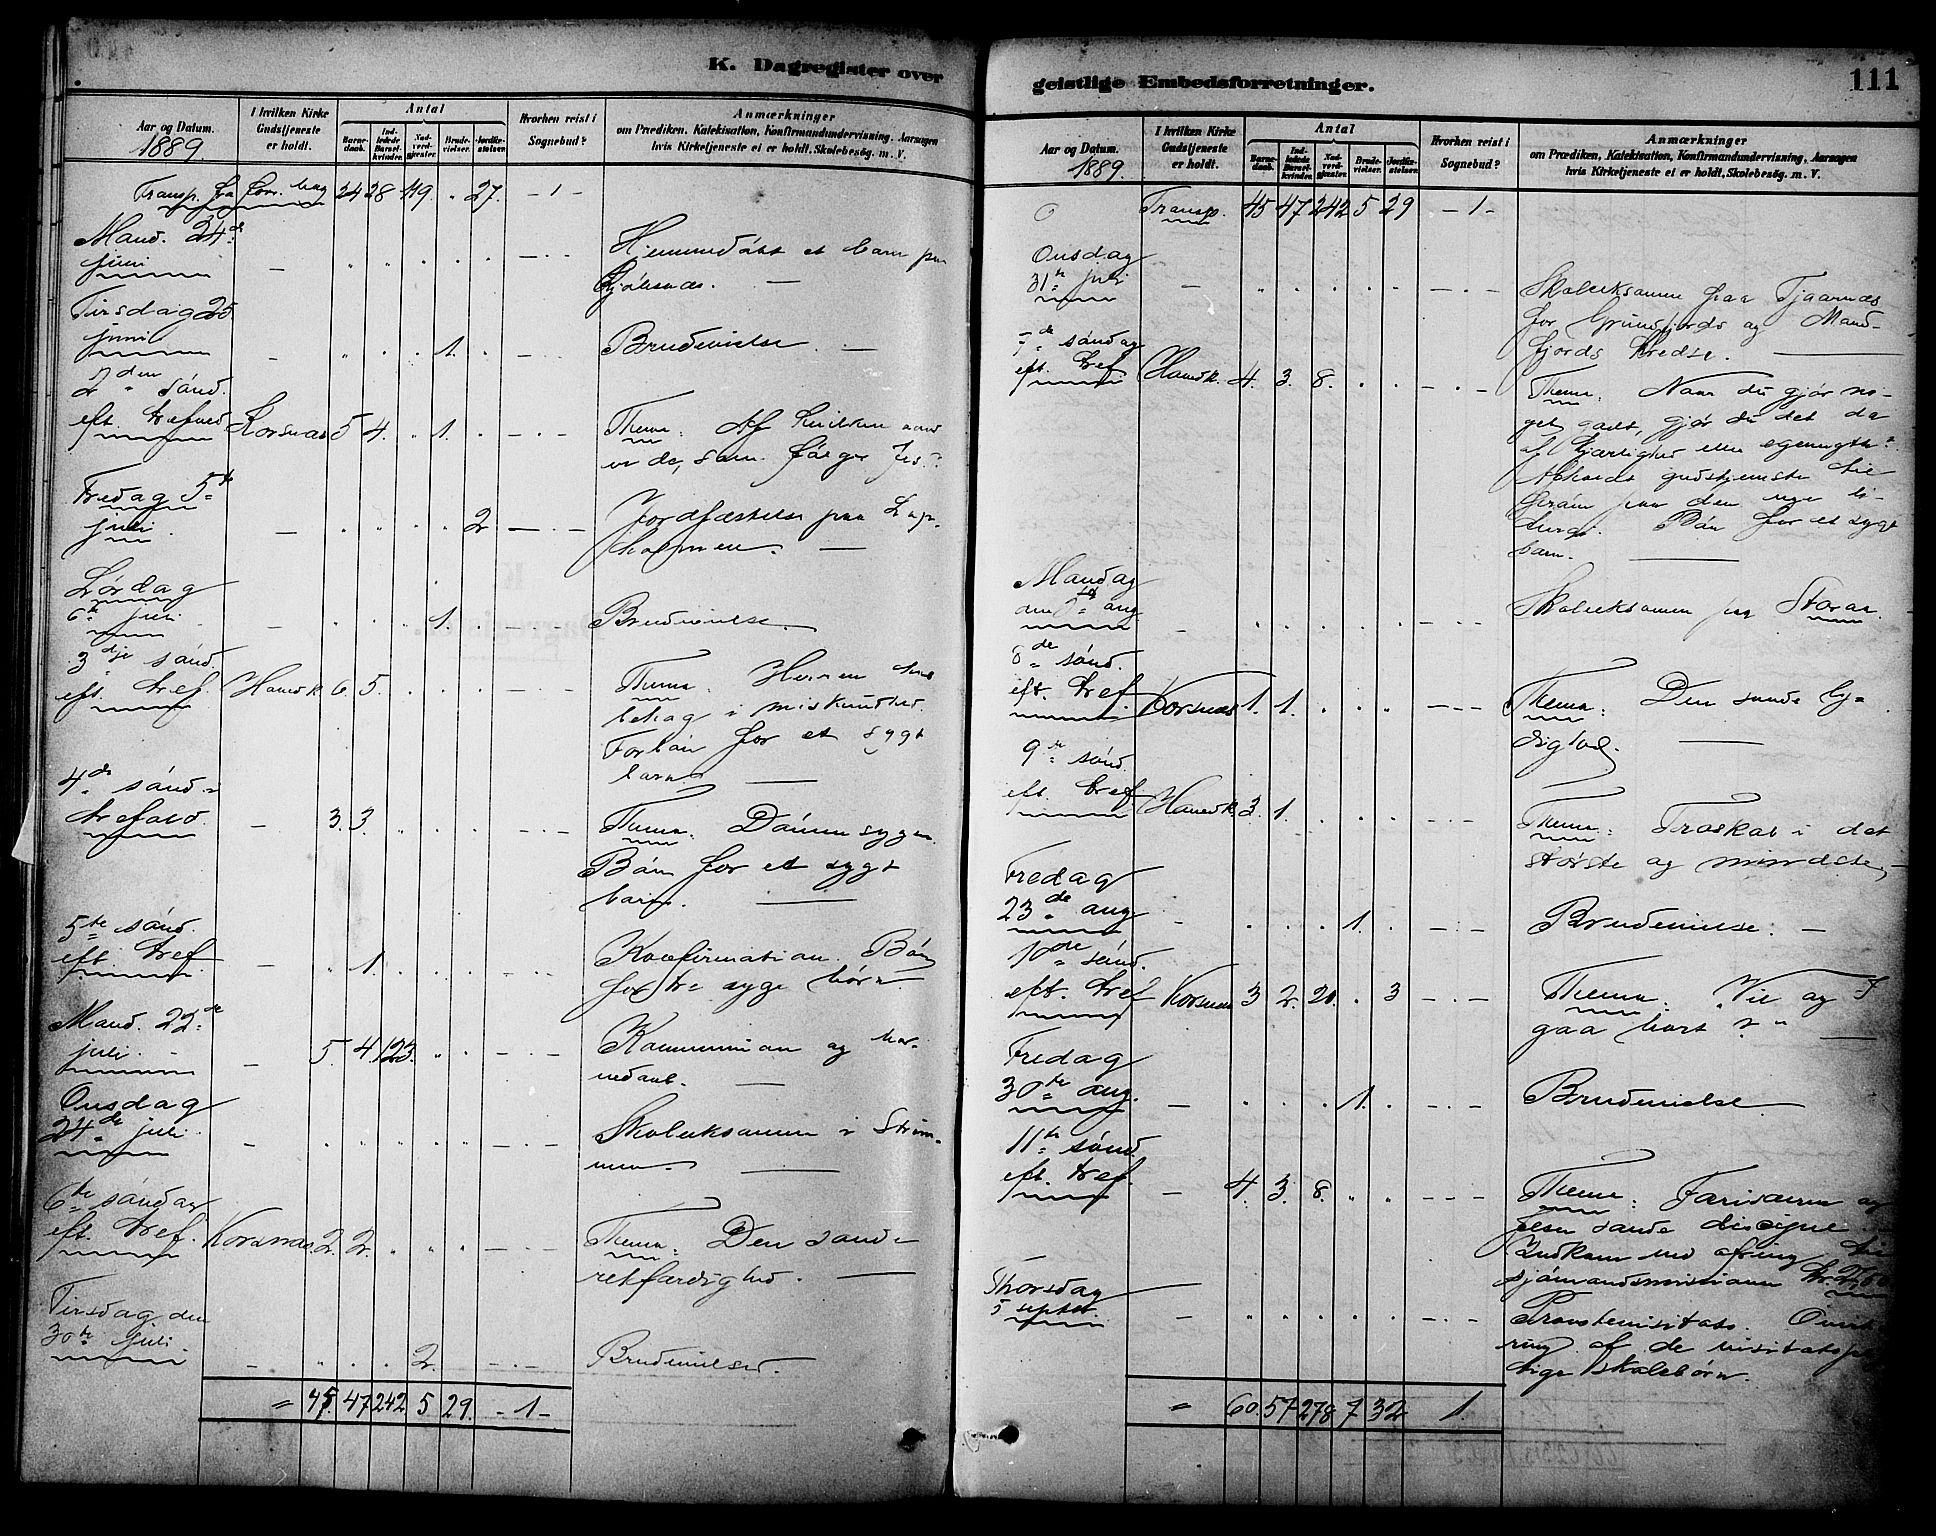 K. Dagregister over
Aar og Datum.
1889.
I hvilken Kirke Gudstjeneste er holdt.
Antal
Barnedaab.
Indledede Barselkvinder.
Nadverdgjester.
Brudevielser.
Jordfæstelser.
Hvorhen reist i Sognebud?
Anmærkninger
om Prædiken, Katekisation, Konfirmandundervisning, Aarsagen
hvis Kirketjeneste ei er holdt, Skolebesøg, m. V.
Transp. fra forr. bag 24 28 119. " 27. - 1 -
Mand. 24de
juni - Hjemmedøbt et barn paa
Kjøbsnæs. -
Tirsdag 25
juni - 1. Brudevielse. -
2den sønd.
eft. trefned. Korsnæs 5 4. 1. Thema: Af hvilken aand
er de, som følger Jes.
Fredag 5te
juli. - 2 Jordfæstelse paa
holmen. -
Lørdag
6te juli - 1. Brudevielse.
3dje sønd.
eft. tref. Hamrk. 6. 5. Thema: Herren har
behag i miskundhed.
Forbøn for et sygt
barn. -
4de sønd.
trefold. - 3. 3. Thema:
Bøn for et sygt
barn. -
5te sønd.
eft. tref. - " 1. Konfirmation. Bøn
for tre syge børn
Mand. 22de
juli. - 5. 4. 123. Kommunion og bar-
nedaab. -
Onsdag
24de juli - Skoleeksamen i Strøm-
men. -
6te søndag
eft. tref. Korsnæs. 2. 2. Thema: Den sande
retfærdighed. -
Tirsdag den
30te juli. - 2. Brudevielser
= 45. 47 242 5 29. - 1 -
geistlige Embedsforretninger.
111
Aar og Datum.
1889.
I hvilken Kirke Gudstjeneste er holdt.
Antal
Barnedaab.
Indledede Barselkvinder.
Nadverdgjester.
Brudevielser.
Jordfæstelser.
Hvorhen reist i Sognebud?
Anmærkninger
om Prædiken, Katekisation, Konfirmandundervisning, Aarsagen
hvis Kirketjeneste ei er holdt, Skolebesøg, m. V.
Transp. 45 47 242 5 29 - 1 -
Onsdag
31te juli - Skoleeksamen paa Tjaarnæs
for Grundfjords og Mand-
fjords kredse. -
7de søndag
eft. tref. Hamrk. 4. 3. 8. Thema: Naar du gjør no-
get godt, gjør du det da
af kjærlighed eller egennytte?
Afholdt gudstjeneste
paa den nye li-
turgi. Bøn for et sygt
barn. -
Mandag
aug. - Skoleeksamen paa Storaa.
8de sønd.
eft. tref. Korsnæs 1. 1. Thema: Den sande ly-
dighed. -
9de sønd.
eft. tref. Hamrk. 3. 1. Thema: Troskab i det
største og mindste. -
Fredag
23de aug - 1. Brudevielse. -
10de sønd.
eft. tref. Korsnæs 3 2. 20. 3 Thema: "Vil og I
gaa bort?" -
Fredag
30te aug. - 1. Brudevielse.
11te sønd.
eft. tref. - 4. 3. 8. Thema: Farisæeren og
den sande discipel.
Indkom ved ofring til
sjømandsmissionen kr.
Thorsdag
5 septbr. - Provstevisitats.
af de visitatspli-
tige skolebørn.
= 60. 57 278 7 32 1.